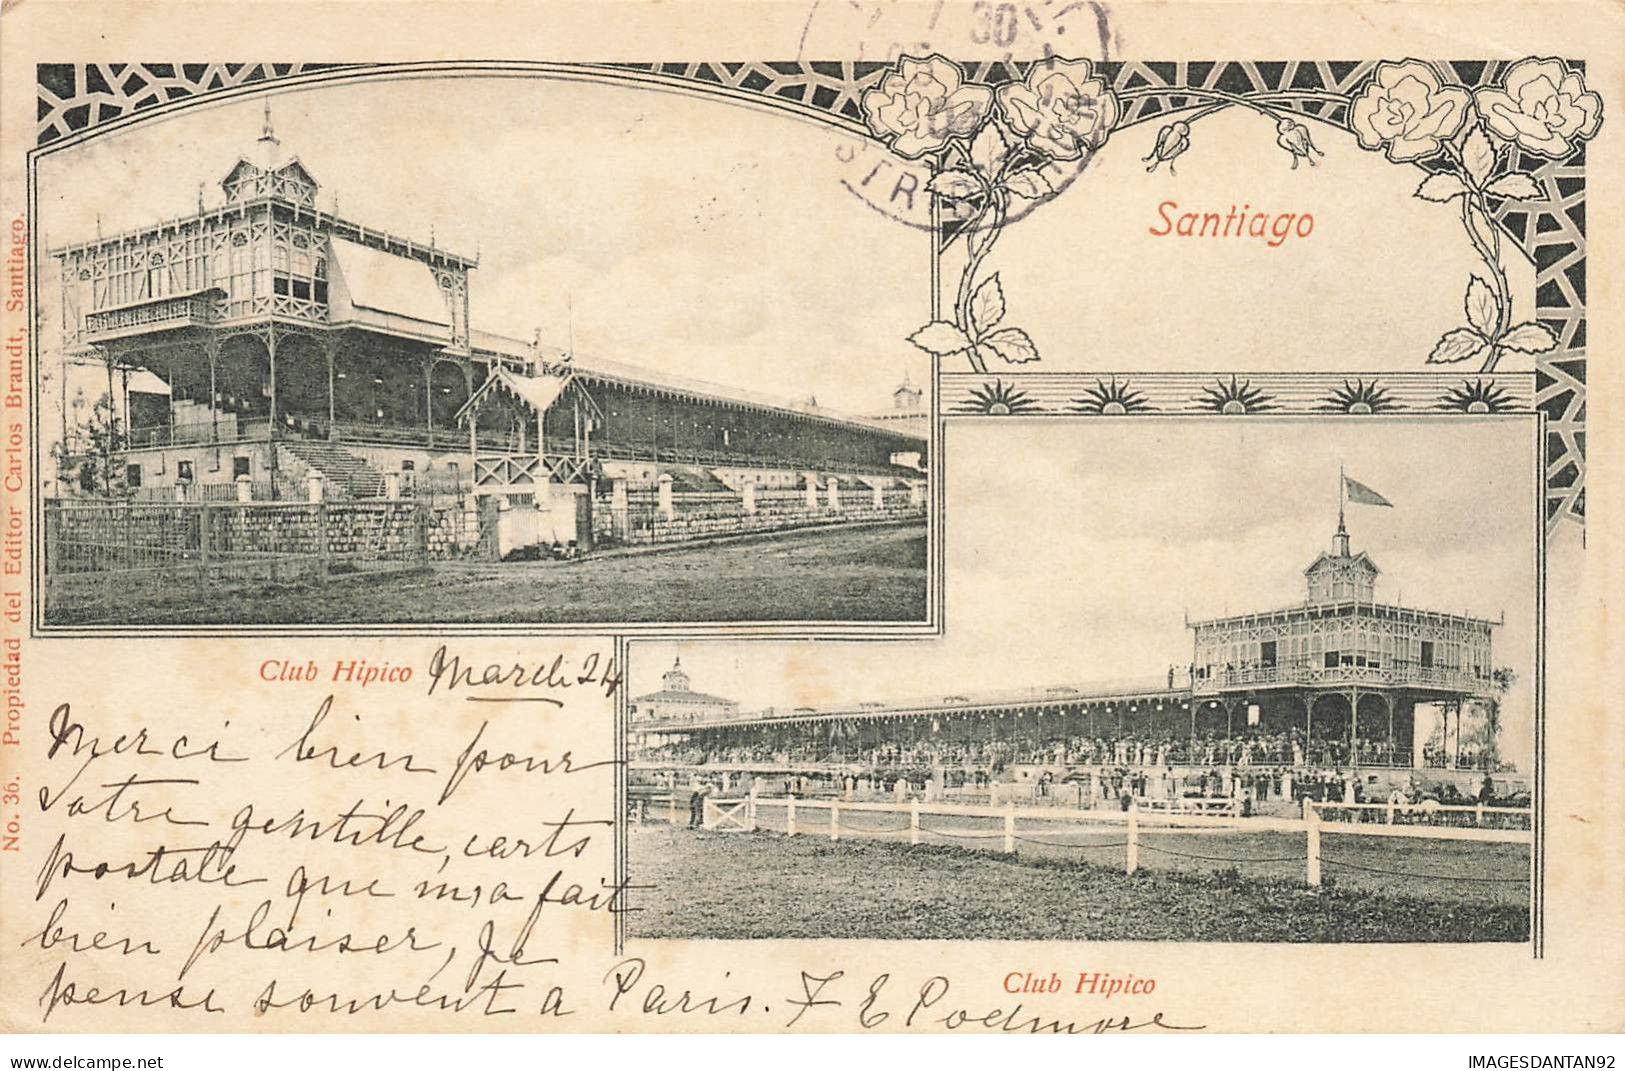 30
DISTRIB
Santiago
No. 36. Propiedad del Editor Carlos Brandt, Santiago.
Club Hipico
March 24
Merci bien pour
votre gentille, carts
postale que m'a fait
bien plaiser, je
pense souvent a Paris. F E Podmore
Club Hipico
www.delcampe.net
IMAGESDANTAN92